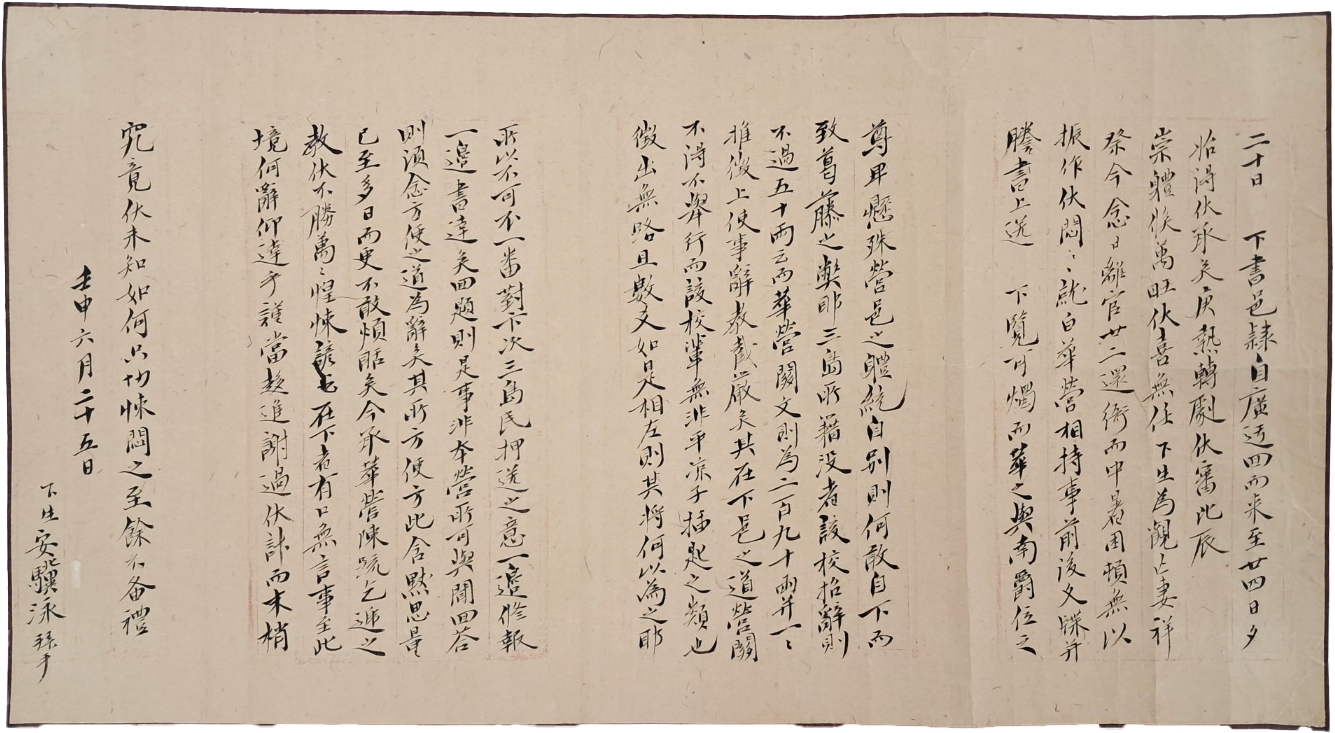 二十日 下書邑隷自廣迃回而來至廿四日夕
始得伏承矣庚熱轉劇伏審此辰
崇體候萬旺伏喜無任下生爲觀亡妻祥
祭今念日離官廿二還衙而中暑困頓無以
振作伏悶〻就白華營相持事前後文牒幷
謄書上送 下覽可燭而華之與南爵位之
尊卑懸殊營邑之軆統自別則何敢自下而
致葛藤之弊耶三島所籍没者該校招辭則
不過五十兩云而華營關文則爲二百九十兩幷一〻
推徵上使事辭敎截嚴矣其在下邑之道營關
不得不擧行而該校輩無非平凉子插匙之類也
徵出無路且數文如是相左則其將何以爲之耶
所以不可不一番對下次三島民押送之意一邊修報
一邊書達矣回題則是事非本營所可與聞回答
則須念方便之道爲辭矣其所方便方此含默思量
已至多日而更不敢煩聒矣今承華營陳疏乞遞之
敎伏不勝萬〻惶悚 在下者有口無言事至此
境何辭仰達乎謹當趍進謝過伏計而末梢
究竟伏未知如何只切悚悶之至餘不备禮
壬申六月二十五日
下生安驥泳 拜手